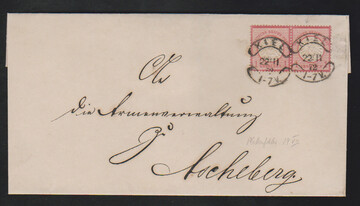 KIEL
22 11
72
1-7V.
KIEL
22 11
72
1-7V.
An
die Armenverwaltung
zu
Ascheberg